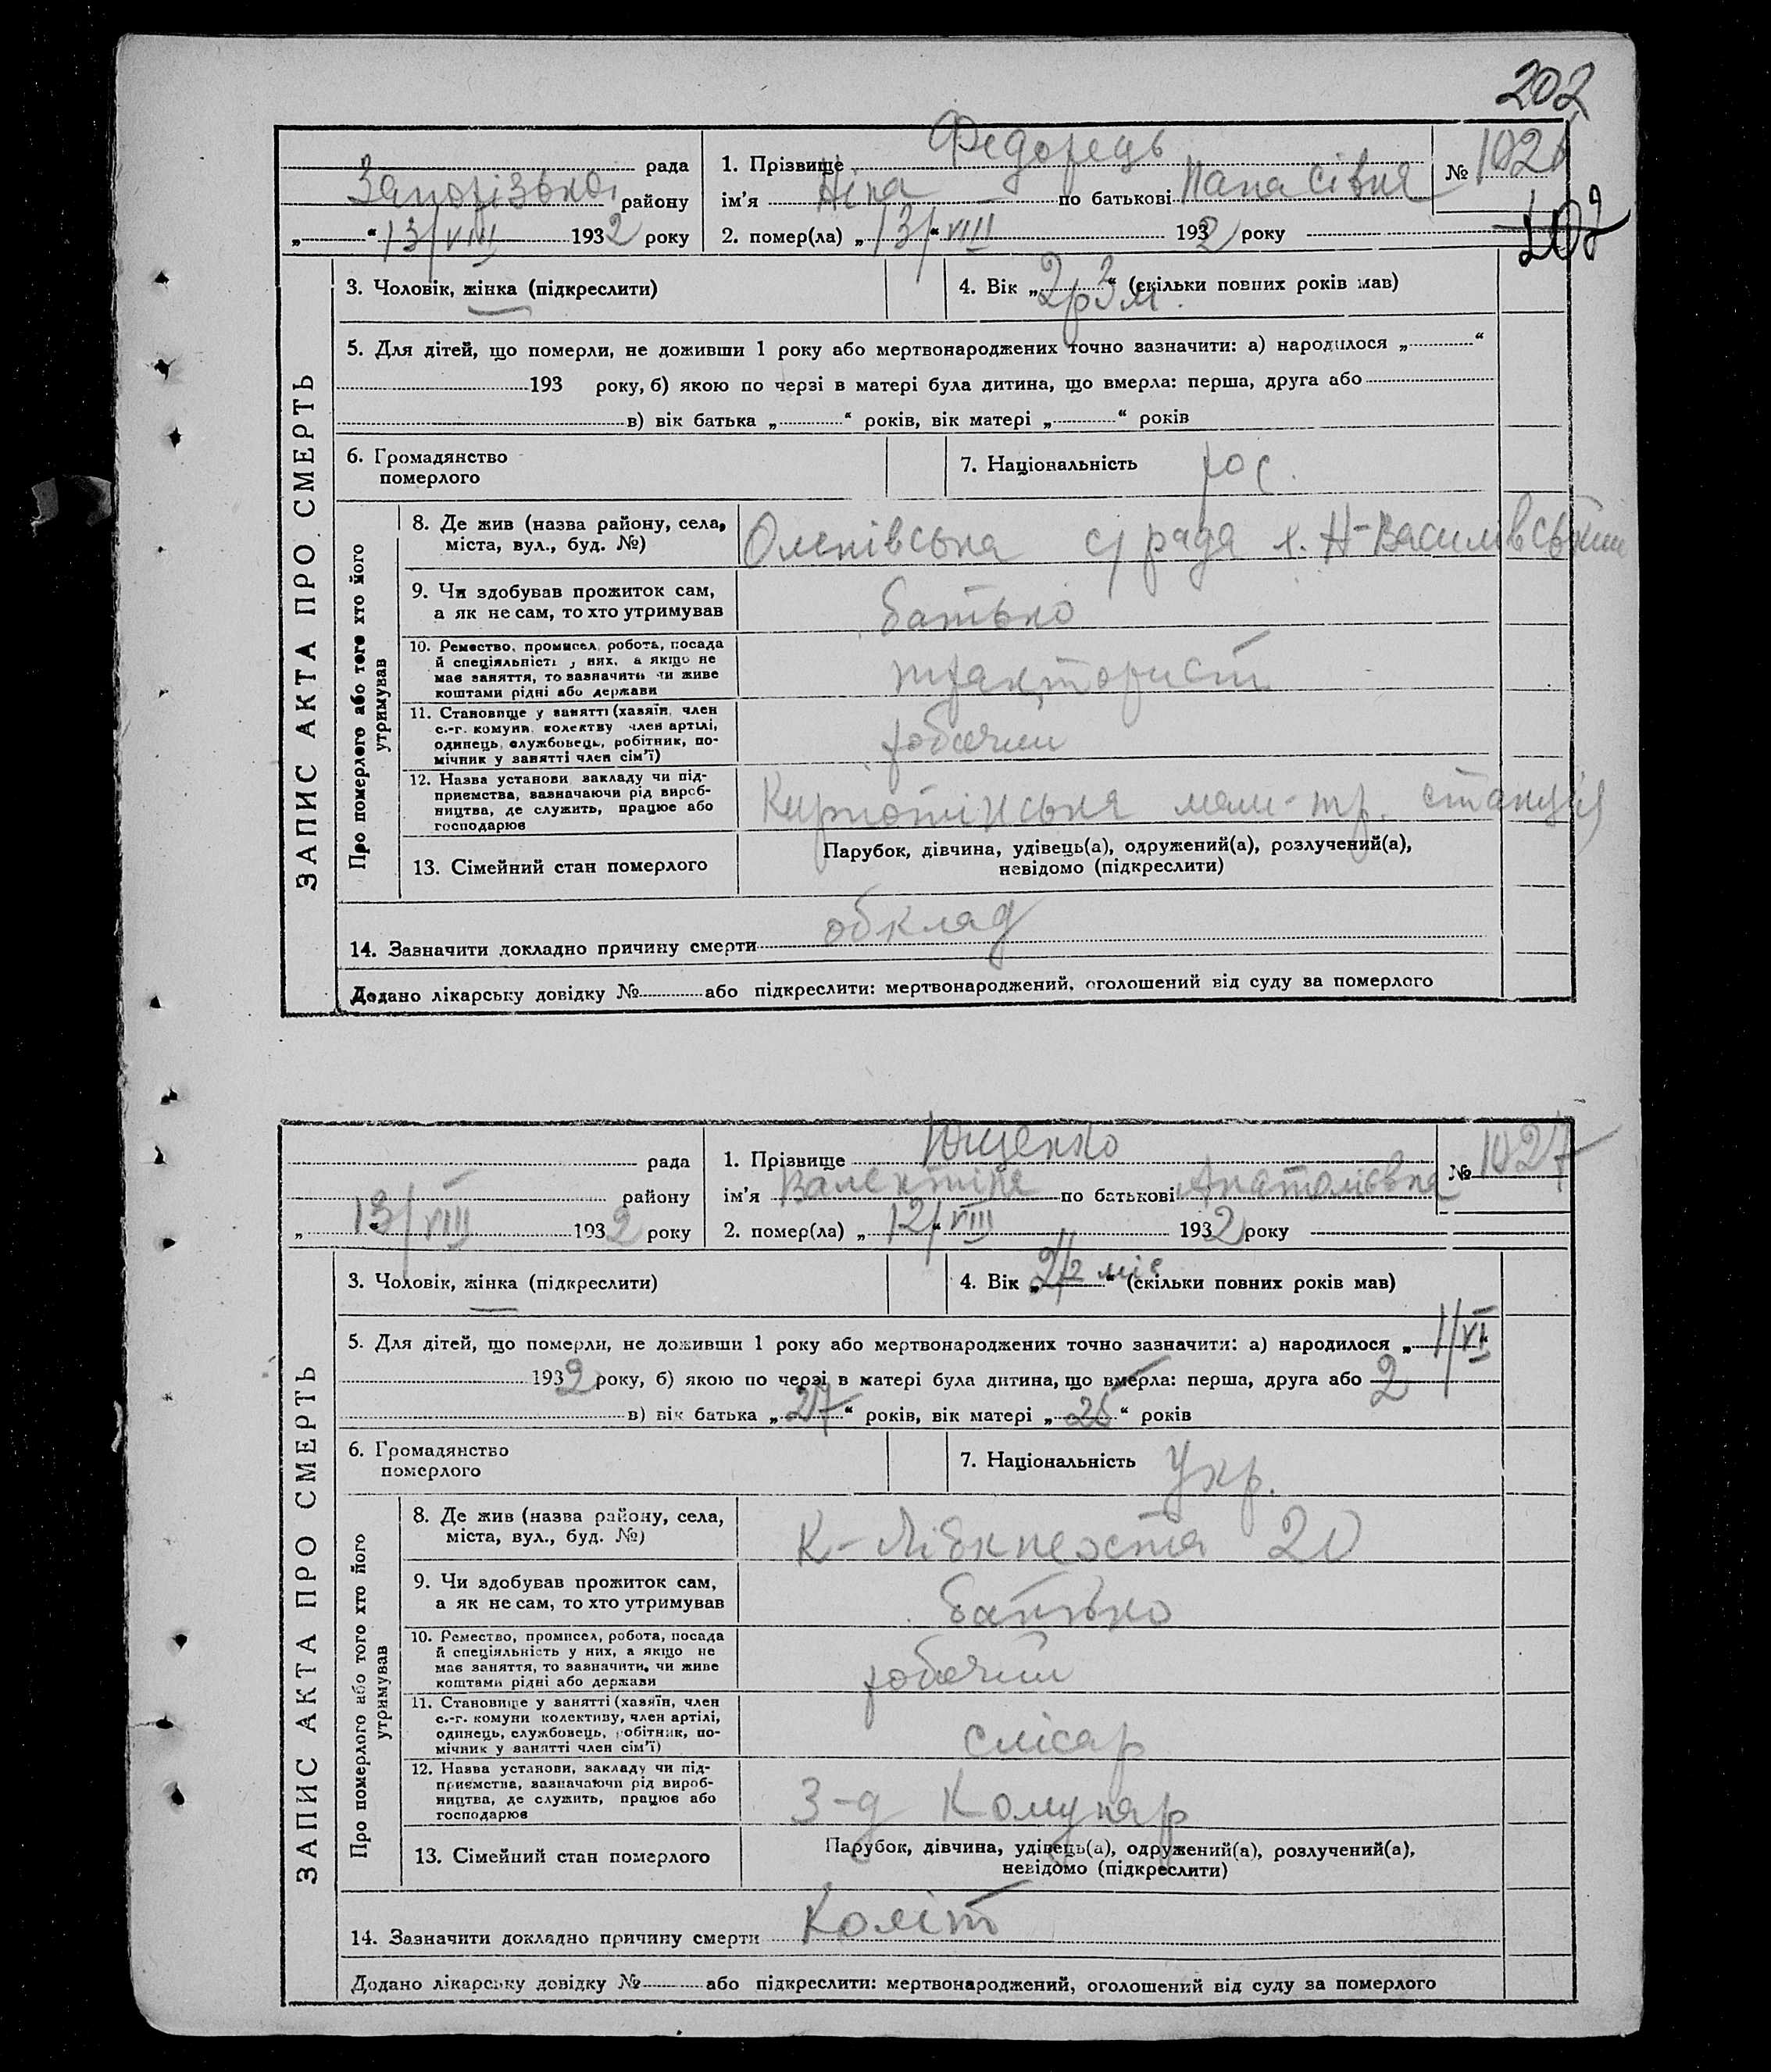 202
рада
Запорізької району
„ “ 13/VIII 1932 року
1. Прізвище Федорець
ім'я Ніна по батькові Панасівна
2. помер(ла) „ 13/“ VIII 1932 року
№ 1026
202
ЗАПИС АКТА ПРО СМЕРТЬ
3. Чоловік, жінка (підкреслити)
4. Вік „2р 3м.“ (скільки повних років мав)
5. Для дітей, що померли, не доживши 1 року або мертвонароджених точно зазначити: а) народилося „ “
193 року, б) якою по черзі в матері була дитина, що вмерла: перша, друга або
в) вік батька „ “ років, вік матері „ “ років
6. Громадянство померлого
7. Національність рос.
Про померлого або того хто його утримував
8. Де жив (назва району, села,
міста, вул., буд. №)
Оленівська с/рада х. Н-Василівський
9. Чи здобував прожиток сам,
а як не сам, то хто утримував
батько
10. Ремество, промисел, робота, посада
й спеціяльність у них, а якщо не
має заняття, то зазначити чи живе
коштами рідні або держави
тракторист
11. Становище у занятті (хазяїн, член
с.-г. комуни, колективу член артілі,
одинець, службовець, робітник, по-
мічник у занятті член сім'ї)
робочий
12. Назва установи, закладу чи під-
приємства, зазначаючи рід вироб-
ництва, де служить, працює або
господарює
маш-тр. станція
13. Сімейний стан померлого
Парубок, дівчина, удівець(а), одружений(а), розлучений(а),
невідомо (підкреслити)
14. Зазначити докладно причину смерти обклад
Додано лікарську довідку № або підкреслити: мертвонароджений, оголошений від суду за померлого
рада
району
„ 13/VIII 1932 року
1. Прізвище Ющенко
ім'я Валентина по батькові Анатоліевна
2. помер(ла) „ 12/“ VIII 1932 року
№ 1027
ЗАПИС АКТА ПРО СМЕРТЬ
3. Чоловік, жінка (підкреслити)
4. Вік „2 1/2 міс“ (скільки повних років мав)
5. Для дітей, що померли, не доживши 1 року або мертвонароджених точно зазначити: а) народилося „1/VI“
1932 року, б) якою по черзі в матері була дитина, що вмерла: перша, друга або 2
в) вік батька „27“ років, вік матері „25“ років
6. Громадянство померлого
7. Національність Укр.
Про померлого або того хто його утримував
8. Де жив (назва району, села,
міста, вул., буд. №)
К-Лібкнехта 20
9. Чи здобував прожиток сам,
а як не сам, то хто утримував
батько
10. Ремество, промисел, робота, посада
й спеціяльність у них, а якщо не
має заняття, то зазначити, чи живе
коштами рідні або держави
робочий
11. Становище у занятті (хазяїн, член
с.-г. комуни колективу, член артілі,
одинець, службовець, робітник, по-
мічник у занятті член сім'ї)
слісар
12. Назва установи, закладу чи під-
приємства, зазначаючи рід вироб-
ництва, де служить, працює або
господарює
З-д Комунар
13. Сімейний стан померлого
Парубок, дівчина, удівець(а), одружений(а), розлучений(а),
невідомо (підкреслити)
14. Зазначити докладно причину смерти Коліт
Додано лікарську довідку № або підкреслити: мертвонароджений, оголошений від суду за померлого